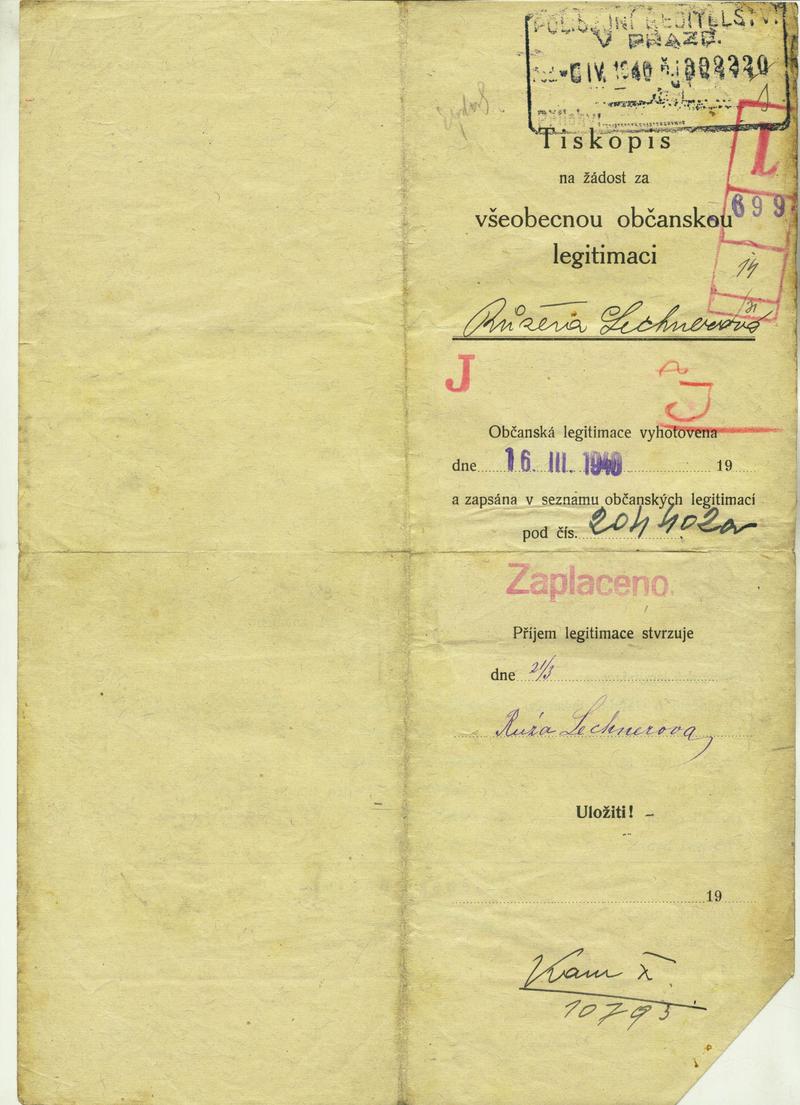 POLICEJNÍ ŘEDITELSTVÍ
V PRAZE.
IV. 1940 čj 302220
Přílohy:
Tiskopis
na žádost za
všeobecnou občanskou
legitimaci
L
699
14
31
Růžena Lechnerová
J
J
Občanská legitimace vyhotovena
dne 16. III. 1940 19
a zapsána v seznamu občanských legitimací
pod čís. 204402a
Zaplaceno.
Příjem legitimace stvrzuje
dne 21/3
Ruza Lechnerova
Uložiti! –
19
Kam X.
10793